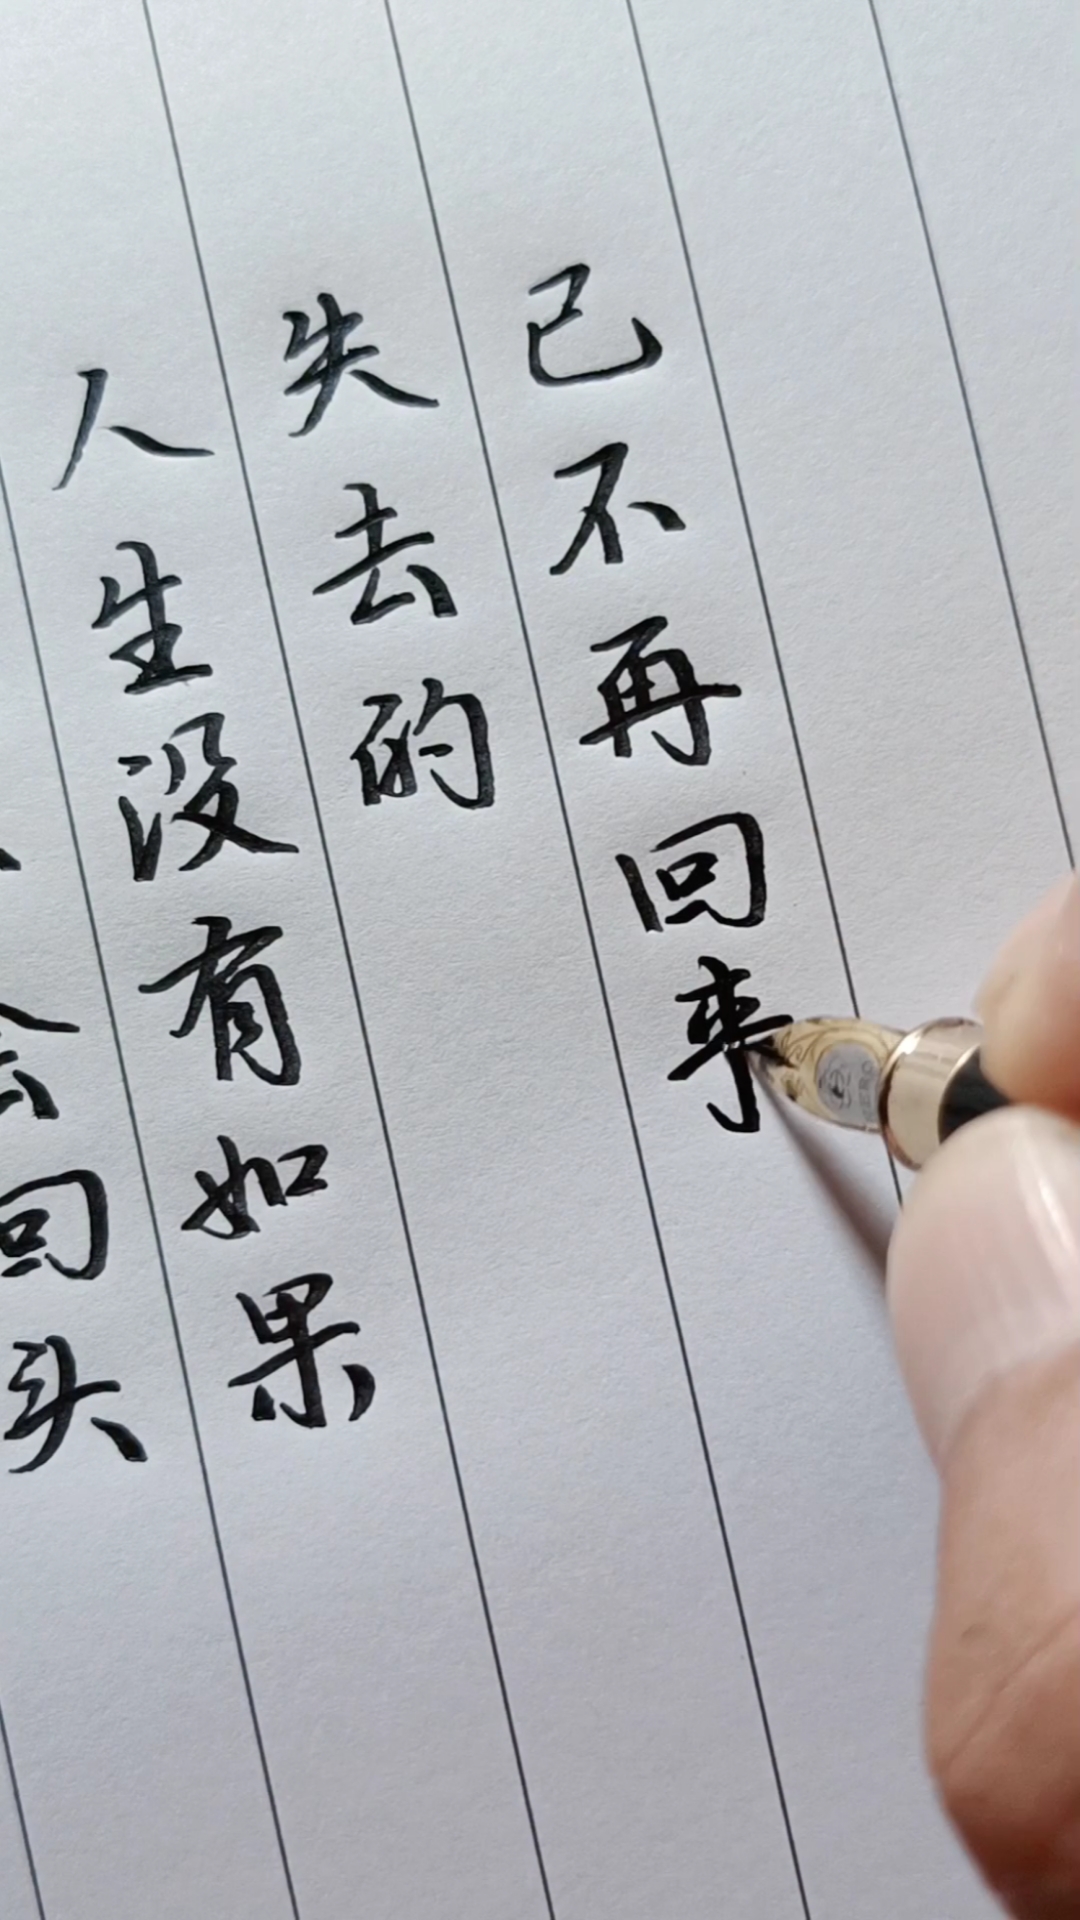 会回头
人生没有如果
失去的
已不再回来